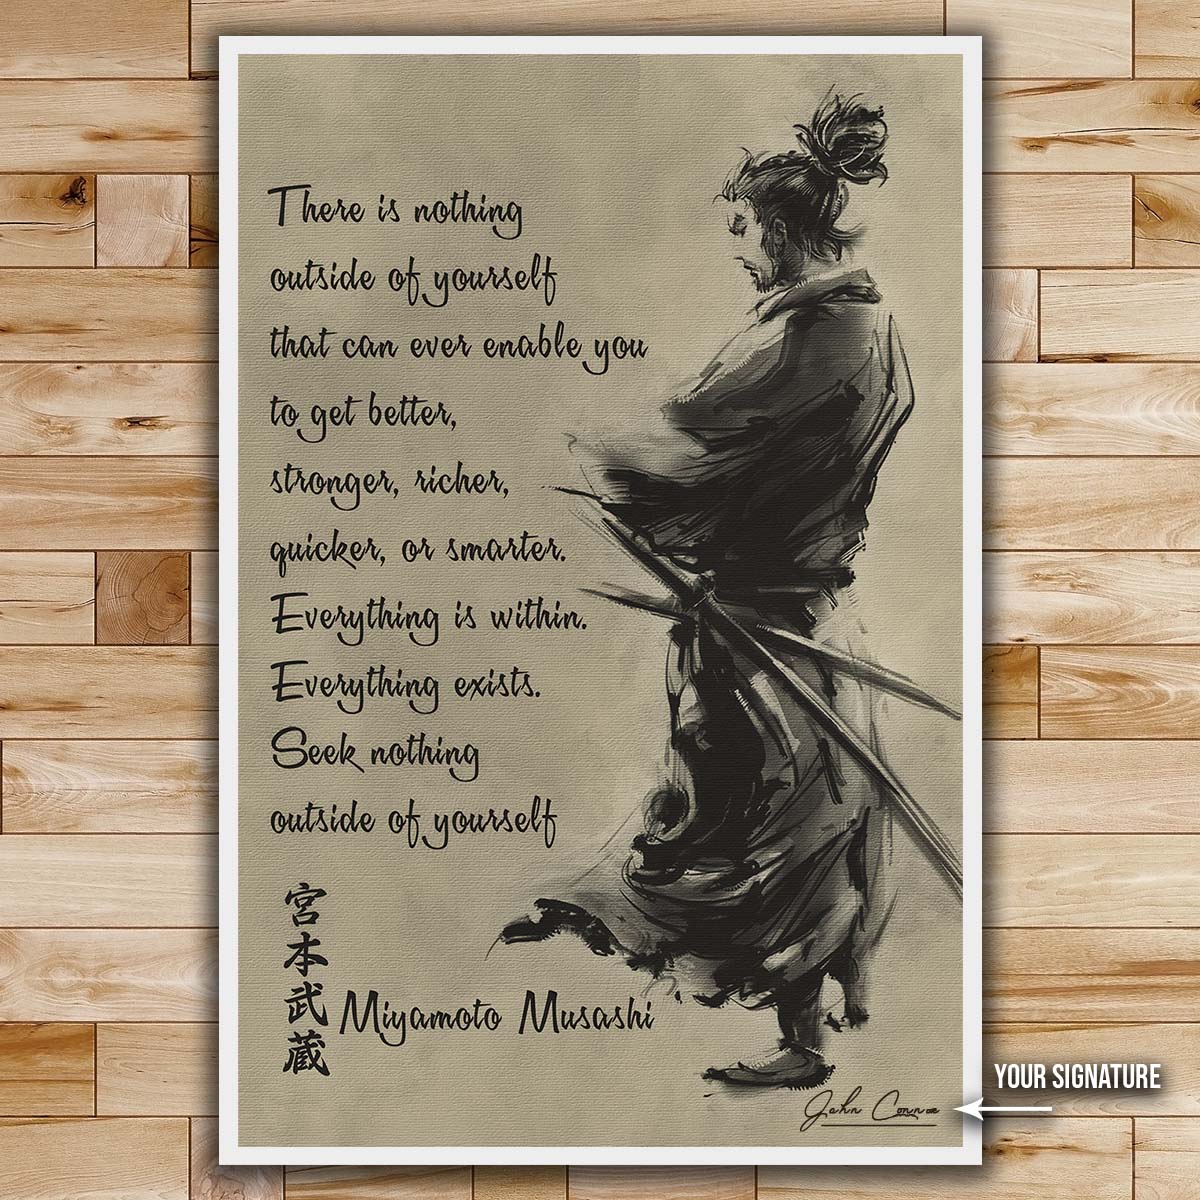 There is nothing
outside of yourself
that can ever enable you
to get better,
stronger, richer,
quicker, or smarter.
Everything is within.
Everything exists.
Seek nothing
outside of yourself
宮本武蔵
Miyamoto Musashi
YOUR SIGNATURE
John Connor